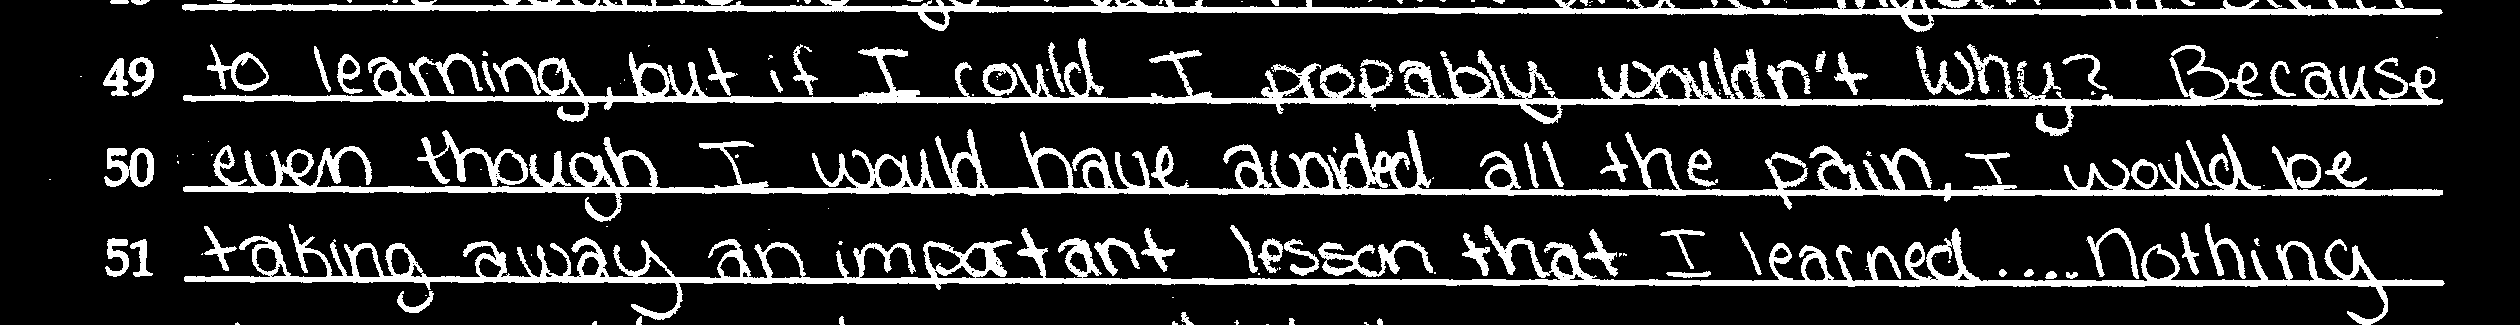 49 to learning, but if I could I propably wouldn't Why? Because
50 even though I would have avoided all the pain, I would be
51 taking away an important lesson that I learned.... Nothing